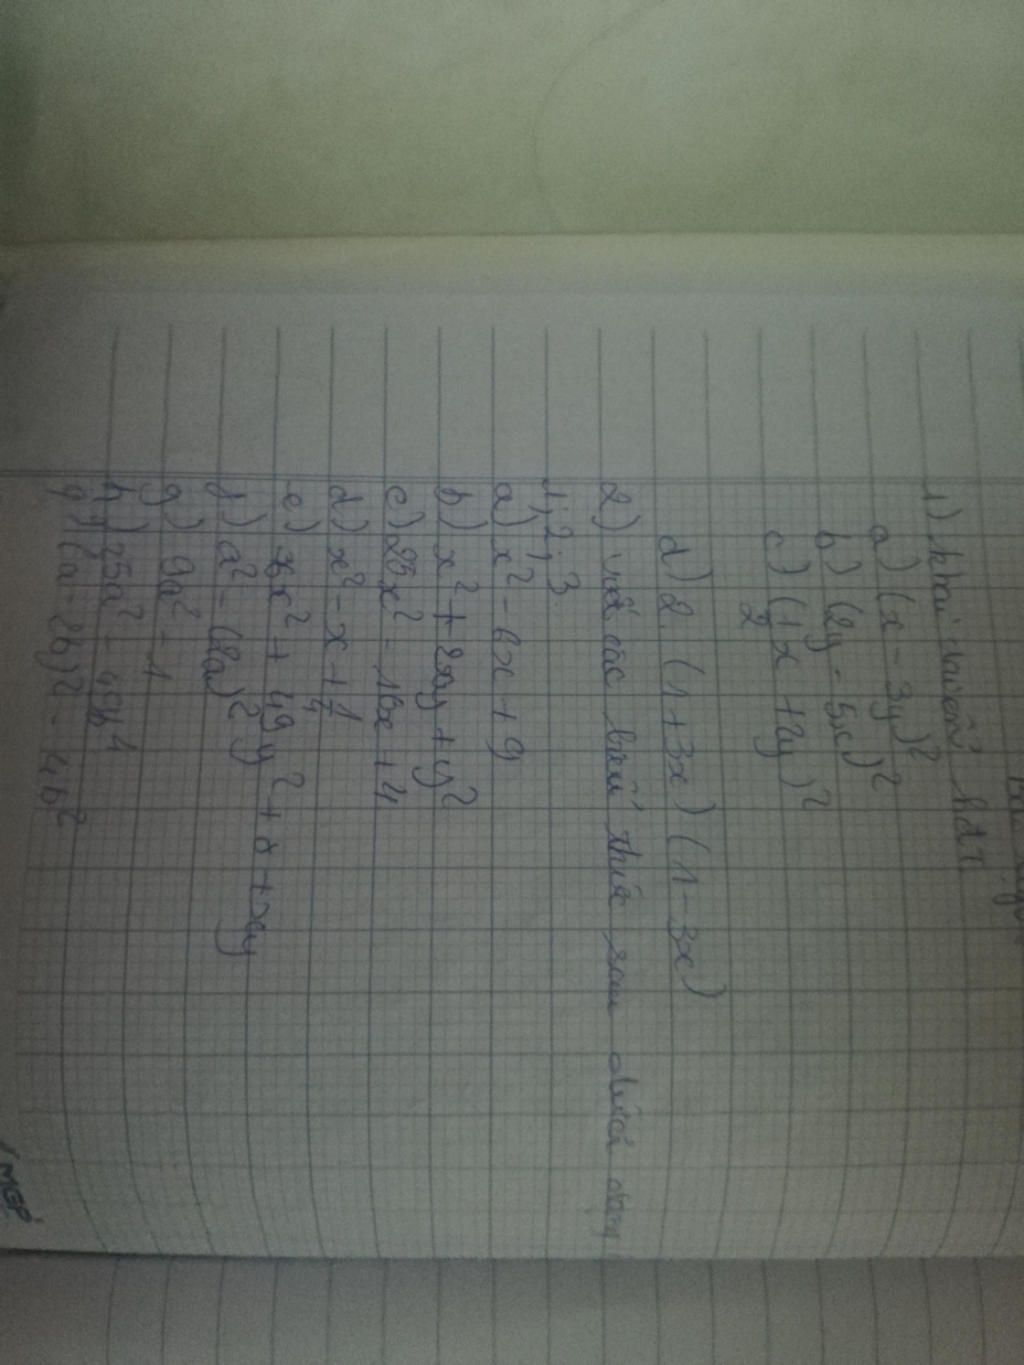 1) khai triển hđt
a) (x - 3y)²
b) (2y - 5x)²
c) (1/2 x + 2y)²
d) 2. (1+3x) (1-3x)
2) viết các biểu thức sau dưới dạng
1; 2; 3
a) x² - 6x + 9
b) x² + 2xy + y²
c) 25x² - 10x + 4
d) x² - x + 1/4
e) x² + 49y² + xy
f) a² - (2a)²
g) 9a² - 1
h) 25a² - 49b⁴
(a - 2b)² - 4b²
MGP